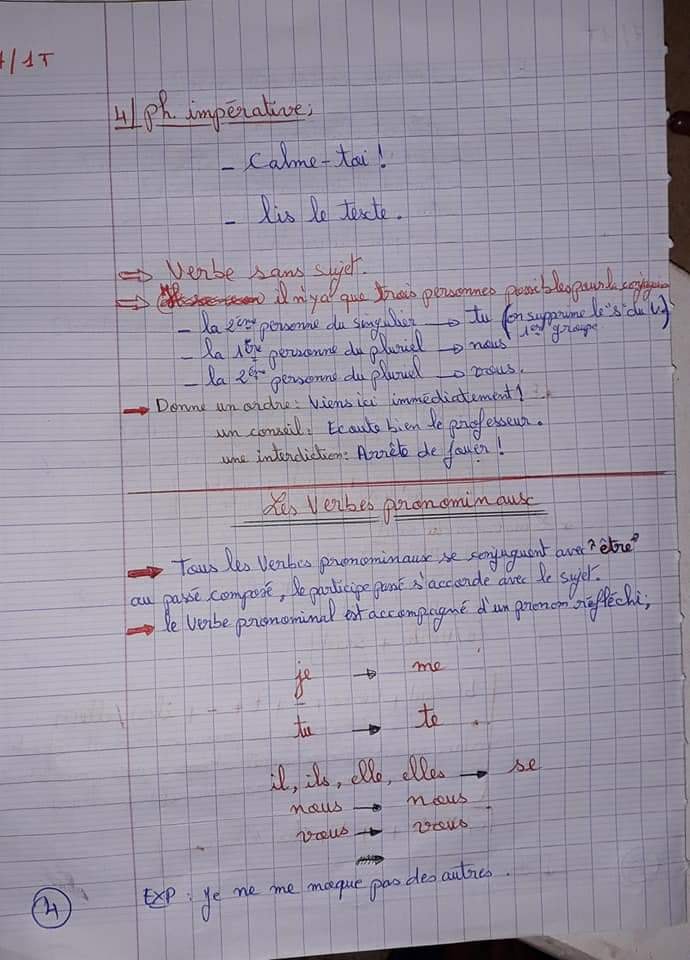 /1T
4/ ph. impérative;
- Calme-toi !
- lis le texte.
⇒ Verbe sans sujet.
⇒ il n'y a que trois personnes possibles pour la conjugaison
- la 2ème personne du singulier → tu (on supprime le "s" du V.
1er groupe)
- la 1ère personne du pluriel → nous
- la 2ème personne du pluriel → vous.
→ Donne un ordre : Viens ici immédiatement !
un conseil : Ecoute bien le professeur.
une interdiction : Arrête de jouer !
Les Verbes pronominaux
→ Tous les Verbes pronominaux se conjuguent avec "être"
au passé composé, le participe passé s'accorde avec le sujet.
→ le Verbe pronominal est accompagné d'un pronom réfléchi;
je → me
tu → te .
il, ils, elle, elles → se
nous → nous
vous → vous
EXP : je ne me moque pas des autres .
4